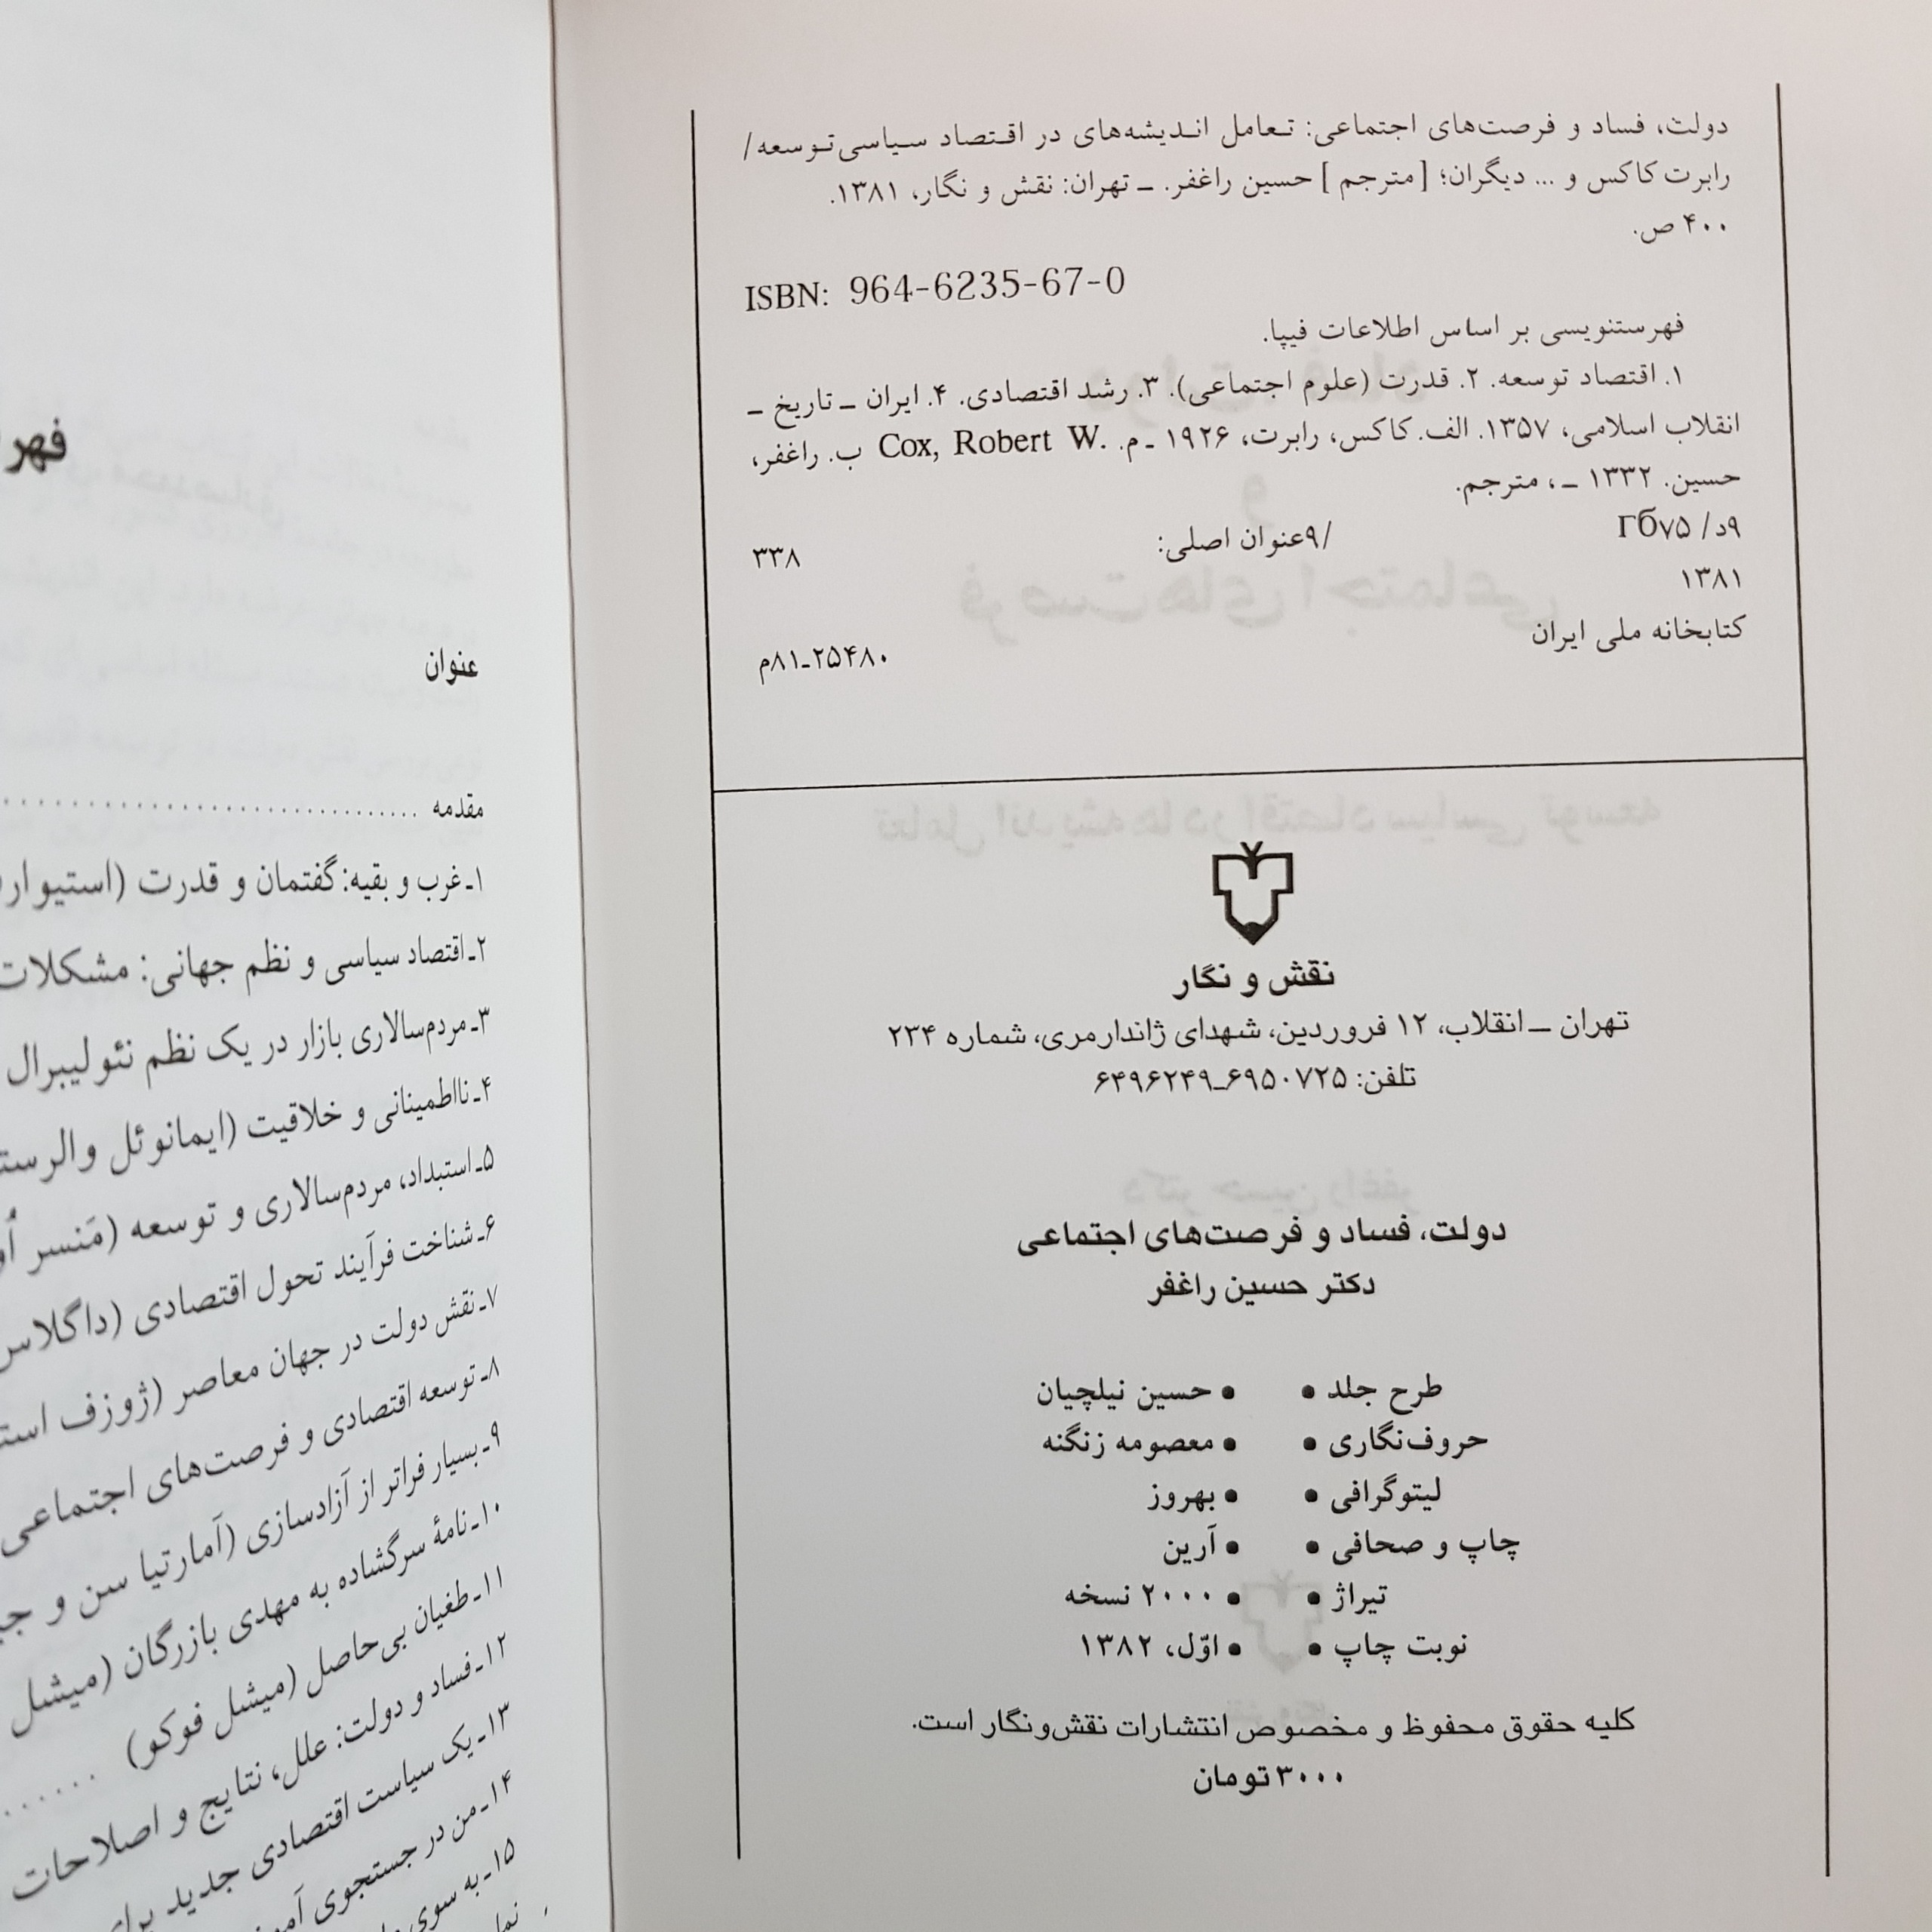 دولت، فساد و فرصت‌های اجتماعی: تعامل اندیشه‌های در اقتصاد سیاسی توسعه/
رابرت کاکس و ... دیگران؛ [مترجم] حسین راغفر. ـ تهران: نقش و نگار، ۱۳۸۱.
۴۰۰ ص.
ISBN: 964-6235-67-0
فهرستنویسی بر اساس اطلاعات فیپا.
۱. اقتصاد توسعه. ۲. قدرت (علوم اجتماعی). ۳. رشد اقتصادی. ۴. ایران ـ تاریخ ـ
انقلاب اسلامی، ۱۳۵۷. الف. کاکس، رابرت، ۱۹۲۶ ـ م. Cox, Robert W. ب. راغفر،
حسین. ۱۳۳۲ ـ ، مترجم.
۹د/ ۷۵ /۹عنوان اصلی: ۳۳۸
۱۳۸۱
کتابخانه ملی ایران ۲۵۴۸۰ـ۸۱م
نقش و نگار
تهران ـ انقلاب، ۱۲ فروردین، شهدای ژاندارمری، شماره ۲۳۴
تلفن: ۶۹۵۰۷۲۵ـ۶۴۹۶۲۴۹
دولت، فساد و فرصت‌های اجتماعی
دکتر حسین راغفر
طرح جلد • • حسین نیلچیان
حروف‌نگاری • • معصومه زنگنه
لیتوگرافی • • بهروز
چاپ و صحافی • • آرین
تیراژ • • ۲۰۰۰ نسخه
نوبت چاپ • • اوّل، ۱۳۸۲
کلیه حقوق محفوظ و مخصوص انتشارات نقش‌ونگار است.
۳۰۰۰ تومان
عنوان
مقدمه ..............................
۱ـ غرب و بقیه: گفتمان و قدرت
۲ـ اقتصاد سیاسی و نظم جهانی: مشکلات
۳ـ مردم‌سالاری بازار در یک نظم نئولیبرال
۴ـ نااطمینانی و خلاقیت (ایمانوئل
۵ـ استبداد، مردم‌سالاری و توسعه (مَنسر
۶ـ شناخت فرآیند تحول اقتصادی (داگلاس
۷ـ نقش دولت در جهان معاصر (ژوزف
۸ـ توسعه اقتصادی و فرصت‌های اجتماعی
۹ـ بسیار فراتر از آزادسازی (آمارتیا سن و
۱۰ـ نامهٔ سرگشاده به مهدی بازرگان (میشل
۱۱ـ طغیان بی‌حاصل (میشل فوکو) .......
۱۲ـ فساد و دولت: علل، نتایج و اصلاحات
۱۳ـ یک سیاست اقتصادی جدید برای
۱۴ـ من در جستجوی
۱۵ـ به سوی